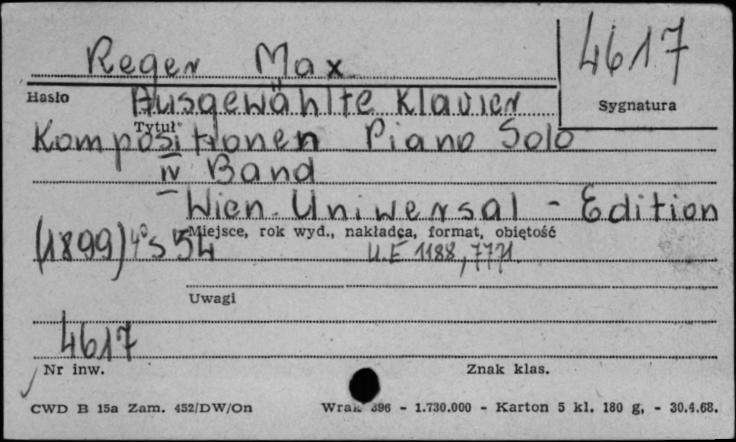 Reger Max
4617
Hasło
Ausgewählte Klavier
Sygnatura
Tytuł
Kompositionen Piano Solo
IV Band
Wien. Uniwersal - Edition
Miejsce, rok wyd., nakładca, format, objętość
(1899) 4° S 54
U.E 1188, 7771.
Uwagi
4617
Nr inw.
Znak klas.
CWD B 15a Zam. 452/DW/On
Wrak 396 - 1.730.000 - Karton 5 kl. 180 g, - 30.4.68.